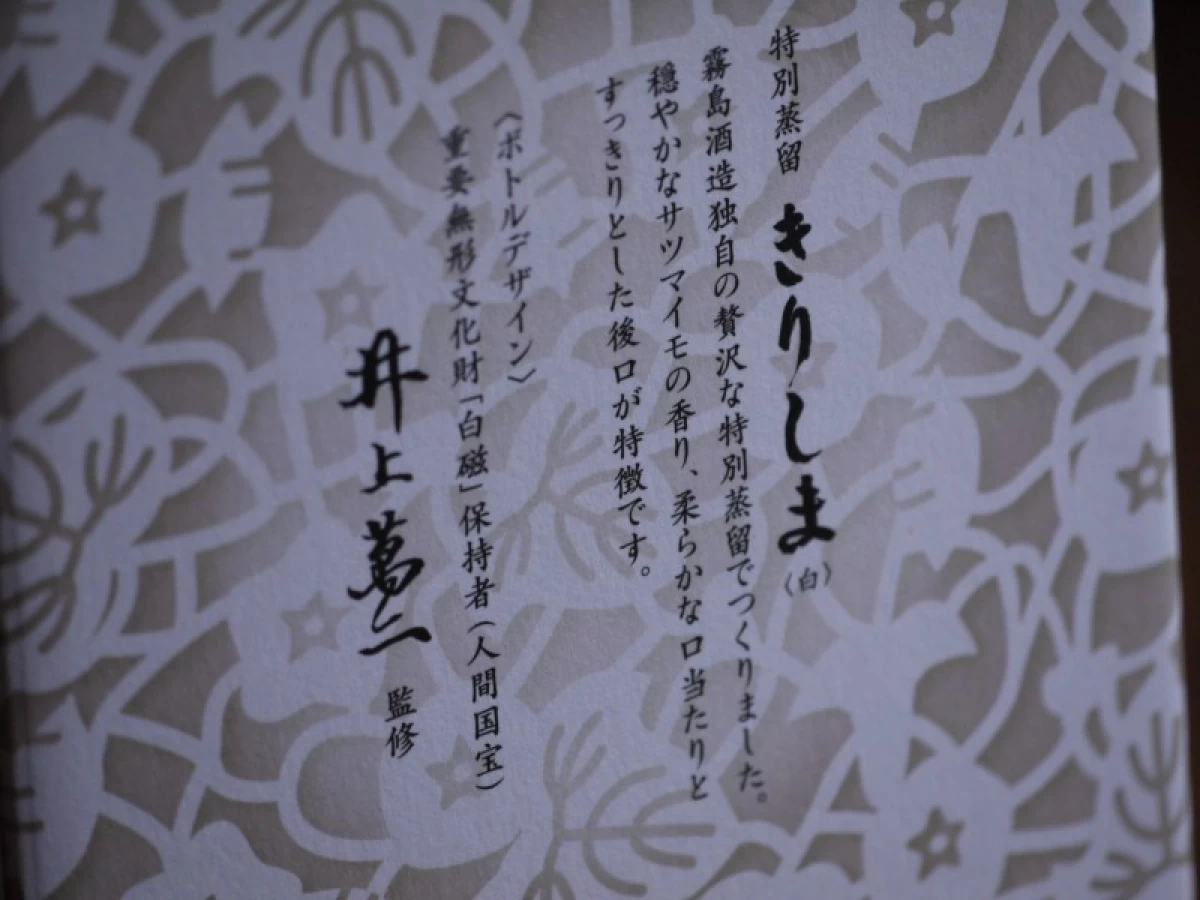 特別蒸留 きりしま（白）
霧島酒造独自の贅沢な特別蒸留でつくりました。
穏やかなサツマイモの香り、柔らかな口当たりと
すっきりとした後口が特徴です。
〈ボトルデザイン〉
重要無形文化財「白磁」保持者（人間国宝）
井上萬二 監修